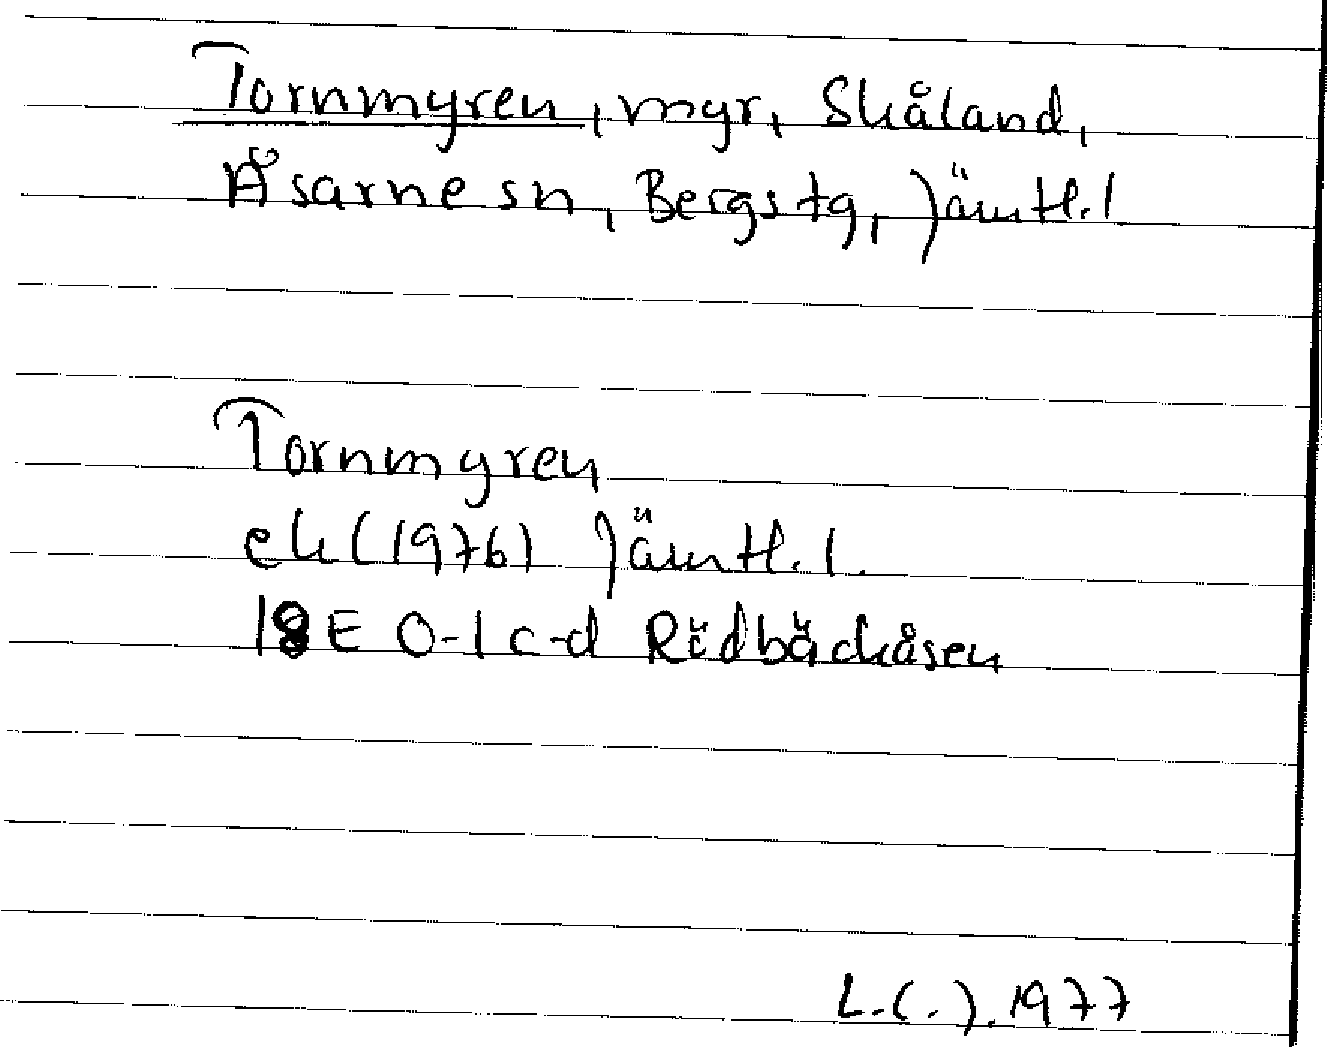 Tornmyren, myr, Skåland,
Åsarne sn, Bergs tg, Jämtl. l
Tornmyren
ek (1976) Jämtl. l.
18E 0-1 c-d Rödbäckåsen
L.(.).1977